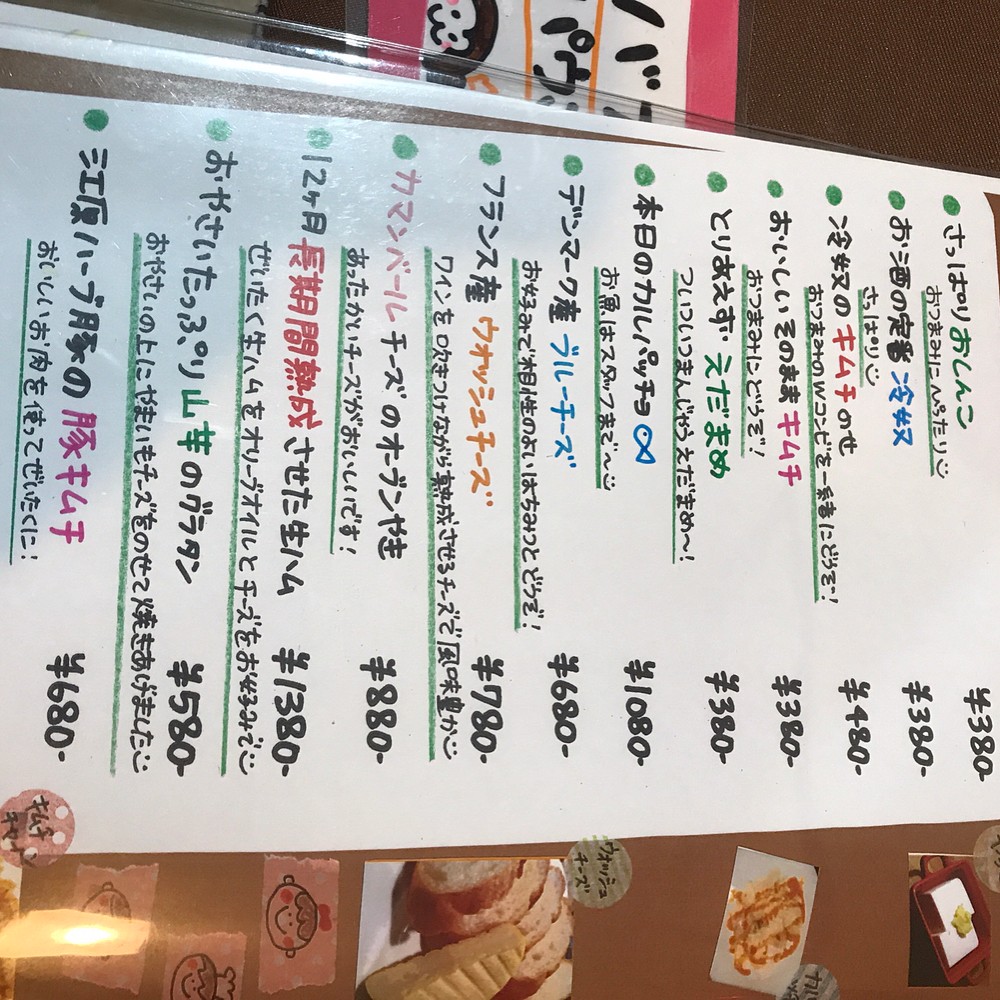 さっぱりおしんこ ¥380-
おつまみにぴったり
お酒の定番 冷奴 ¥380-
さっぱり
冷奴のキムチのせ ¥480-
おつまみのWコンビを一緒にどうぞ!
おいしいそのままキムチ ¥380-
おつまみにどうぞ!
とりあえず えだまめ ¥380-
ついついつまんじゃうえだまめ〜!
本日のカルパッチョ ¥1080-
お魚はスタッフまで〜
デンマーク産 ブルーチーズ ¥680-
お好みで相性のよいはちみつとどうぞ!
フランス産 ウォッシュチーズ ¥780-
ワインを吹きつけながら熟成させるチーズで風味豊か
カマンベールチーズのオーブンやき ¥880-
あったかいチーズがおいしいです!
12ヶ月長期間熟成させた生ハム ¥1380-
ぜいたく生ハムをオリーブオイルとチーズをお好みで
おやさいたっぷり山芋のグラタン ¥580-
おやさいの上にやまいもチーズをのせて焼きあげました
三江原ハーブ豚の豚キムチ ¥680-
おいしいお肉を使ってぜいたくに!
ウォッシュ
チーズ